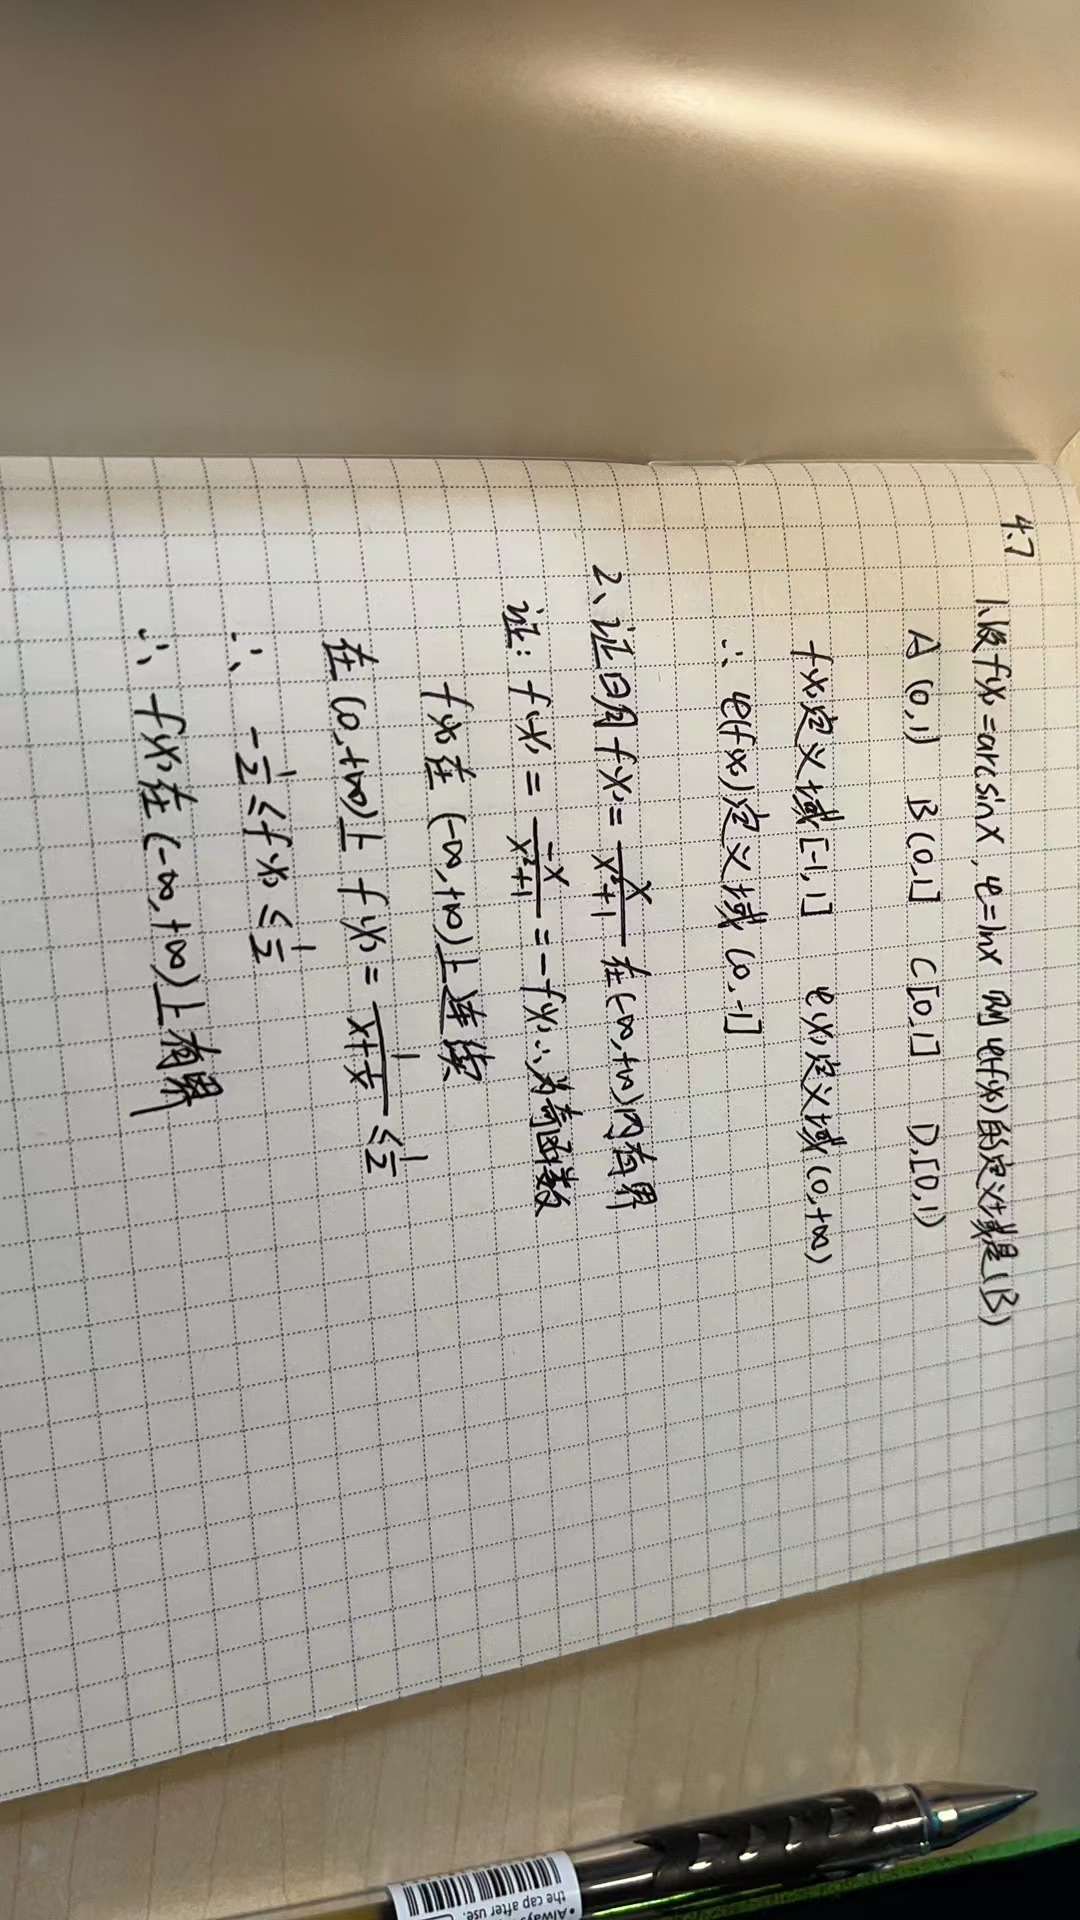 4.7
1、设f(x)=arcsinx,φ=lnx 则φ(f(x))的定义域是(B)
A (0,1) B (0,1] C [0,1] D、[0,1)
f(x)定义域[-1,1] φ(x)定义域(0,+∞)
∴ φ(f(x))定义域 (0,-1]
2、证明f(x)=x/(x²+1) 在(-∞,+∞)内有界
证: f(x)=-x/(x²+1)=-f(x)∴为奇函数
f(x)在(-∞,+∞)上连续
在(0,+∞)上 f(x)=1/(x+1/x)≤1/2
∴ -1/2≤f(x)≤1/2
∴ f(x)在(-∞,+∞)上有界
•Always
the cap after use.